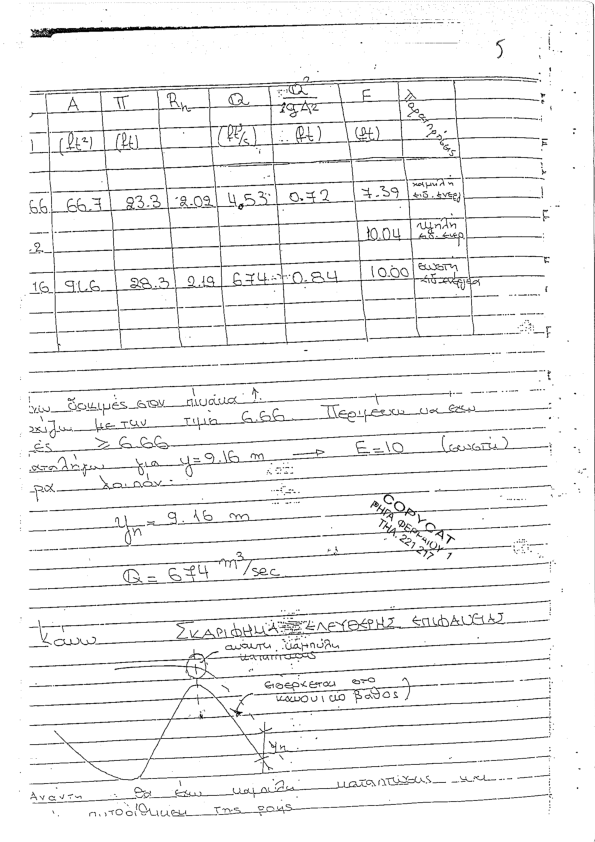 5
A Π Rh Q Q²/2gA² E Παρατηρήσεις
(ft²) (ft) (ft³/s) (ft) (ft)
6.6 66.7 23.3 2.02 4,53 0.72 7.39 χαμηλή ειδ. ενεργ
.2 10.04 υψηλή ειδ. ενερ
16 91.6 28.3 2.19 674 0.84 10.00 σωστή ειδ. ενέργεια
δοκιμές στον πίνακα ↑.
με την τιμή 6.66 Περιμένω να έχω
≥ 6.66
για y=9.16 m → E=10 (σωστή)
λοιπόν:
yn = 9.16 m
Q = 674 m³/sec
COPYCAT
ΡΗΓΑ ΦΕΡΑΙΟΥ 1
ΤΗΛ. 221.217
Κάνω ΣΚΑΡΙΦΗΜΑ ΕΛΕΥΘΕΡΗΣ ΕΠΙΦΑΝΕΙΑΣ
ανάντη καμπύλη
κατάπτωσης
εισέρχεται στο
κανονικό βάθος)
yn
Ανάντη : θα έχω καμπύλη κατάπτωσης και
της ροής